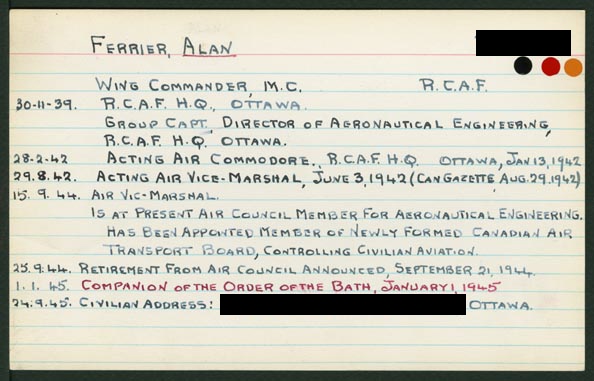 FERRIER, ALAN
WING COMMANDER, M.C. R.C.A.F.
30-11-39. R.C.A.F. H.Q., OTTAWA.
GROUP CAPT., DIRECTOR OF AERONAUTICAL ENGINEERING,
R.C.A.F. H.Q. OTTAWA.
28-2-42 ACTING AIR COMMODORE., R.C.A.F. H.Q. OTTAWA, JAN 13, 1942
29.8.42. ACTING AIR VICE-MARSHAL, JUNE 3, 1942 (CAN GAZETTE, AUG. 29. 1942)
15. 9. 44. AIR VIC-MARSHAL.
IS AT PRESENT AIR COUNCIL MEMBER FOR AERONAUTICAL ENGINEERING.
HAS BEEN APPOINTED MEMBER OF NEWLY FORMED CANADIAN AIR
TRANSPORT BOARD, CONTROLLING CIVILIAN AVIATION.
25.9.44. RETIREMENT FROM AIR COUNCIL ANNOUNCED, SEPTEMBER 21, 1944.
1. 1. 45. COMPANION OF THE ORDER OF THE BATH, JANUARY 1, 1945
24.9.45. CIVILIAN ADDRESS: OTTAWA.